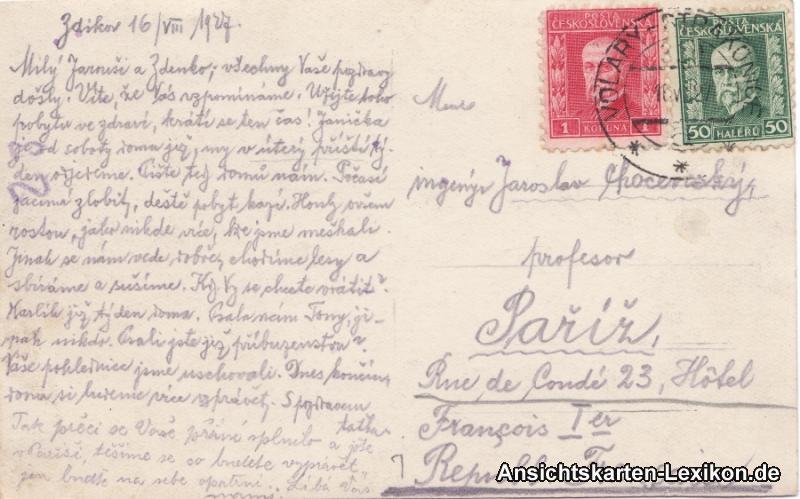 Zdikov 16/VIII 1927.
Milý Jarouši a Zdenko, všechny Vaše pozdravy
došly. Víte, že Vás vzpomínáme. Užijte toho
pobytu ve zdraví, krátí se ten čas! Janička
je od soboty doma již, my v úterý příští tý-
den odjedeme. Pište tedy domů nám. Počasí
začíná zlobit, deště pobyt kazí. Houby ovšem
rostou, jako nikde více, kde jsme meškali.
Jinak se nám vede dobře, chodíme lesy a
sbíráme a sušíme. Kdy Vy se chcete vrátit?
Karlík již týden doma. Psala nám Tony, ji-
nak nikdo. Psali jste již příbuzenstvu?
Vaše pohlednice jsme uschovali. Dnes končím,
doma si budeme více vyprávět. S pozdravem
tatka.
Tak přeci se Vaše přání splnilo a jste
v Paříži těšíme se co budete vyprávět
jen buďte na sebe opatrní. Líbá Vás
POŠTA
ČESKOSLOVENSKÁ
1 KORUNA 1
POŠTA
ČESKOSLOVENSKÁ
50 HALÉŘŮ 50
VOLARY-STRAKONICE
Monsieur
ingenýr Jaroslav Chocenský,
profesor
Paříž,
Rue de Condé 23, Hôtel
François Ier
Republ.
Ansichtskarten-Lexikon.de